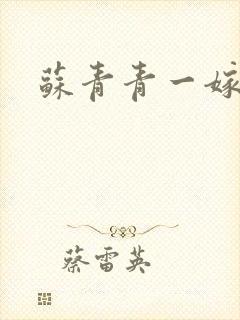 蘇青青一嫁
蔡雷英